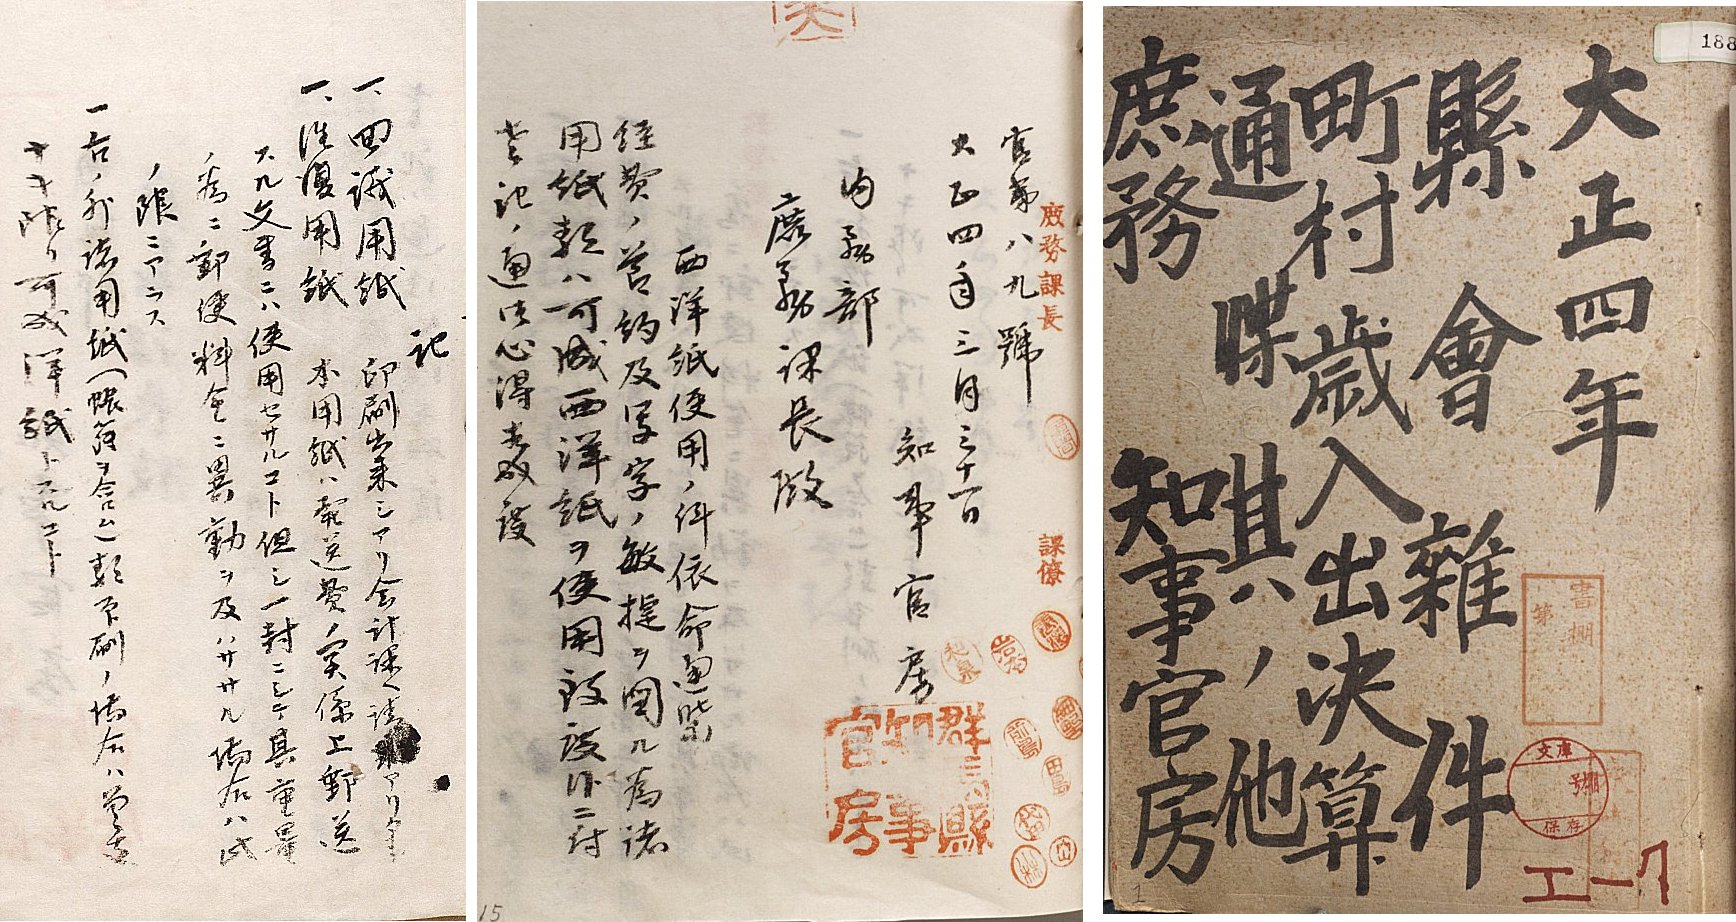 大正四年
縣會雜件
町村歳入出決算
通牒 其ノ他
庶務 知事官房
188
書棚
第
文庫
保存
エ一7
1
官第八九號
大正四年三月三十一日
知事官房
内務部
庶務課長殿
西洋紙使用ノ件依命通牒
経費ノ節約及写字ノ敏捷ヲ図ル為諸
用紙類ハ可成西洋紙ヲ使用致度
記ノ通御心得相成度
庶務課長
課僚
群馬縣知事官房
15
記
一、回議用紙 印刷出来シアリ会計課へ請求アリタシ
一、往復用紙 本用紙ハ郵送費ノ関係上郵送
スル文書ニハ使用セサルコト但シ一封ニシテ其重量
ノ為ニ郵便料金ニ異動ヲ及ハササル場合ハ此
ノ限ニアラス
一右ノ外諸用紙(帳簿ヲ含ム)類印刷ノ場合ハ
可成洋紙トスルコト